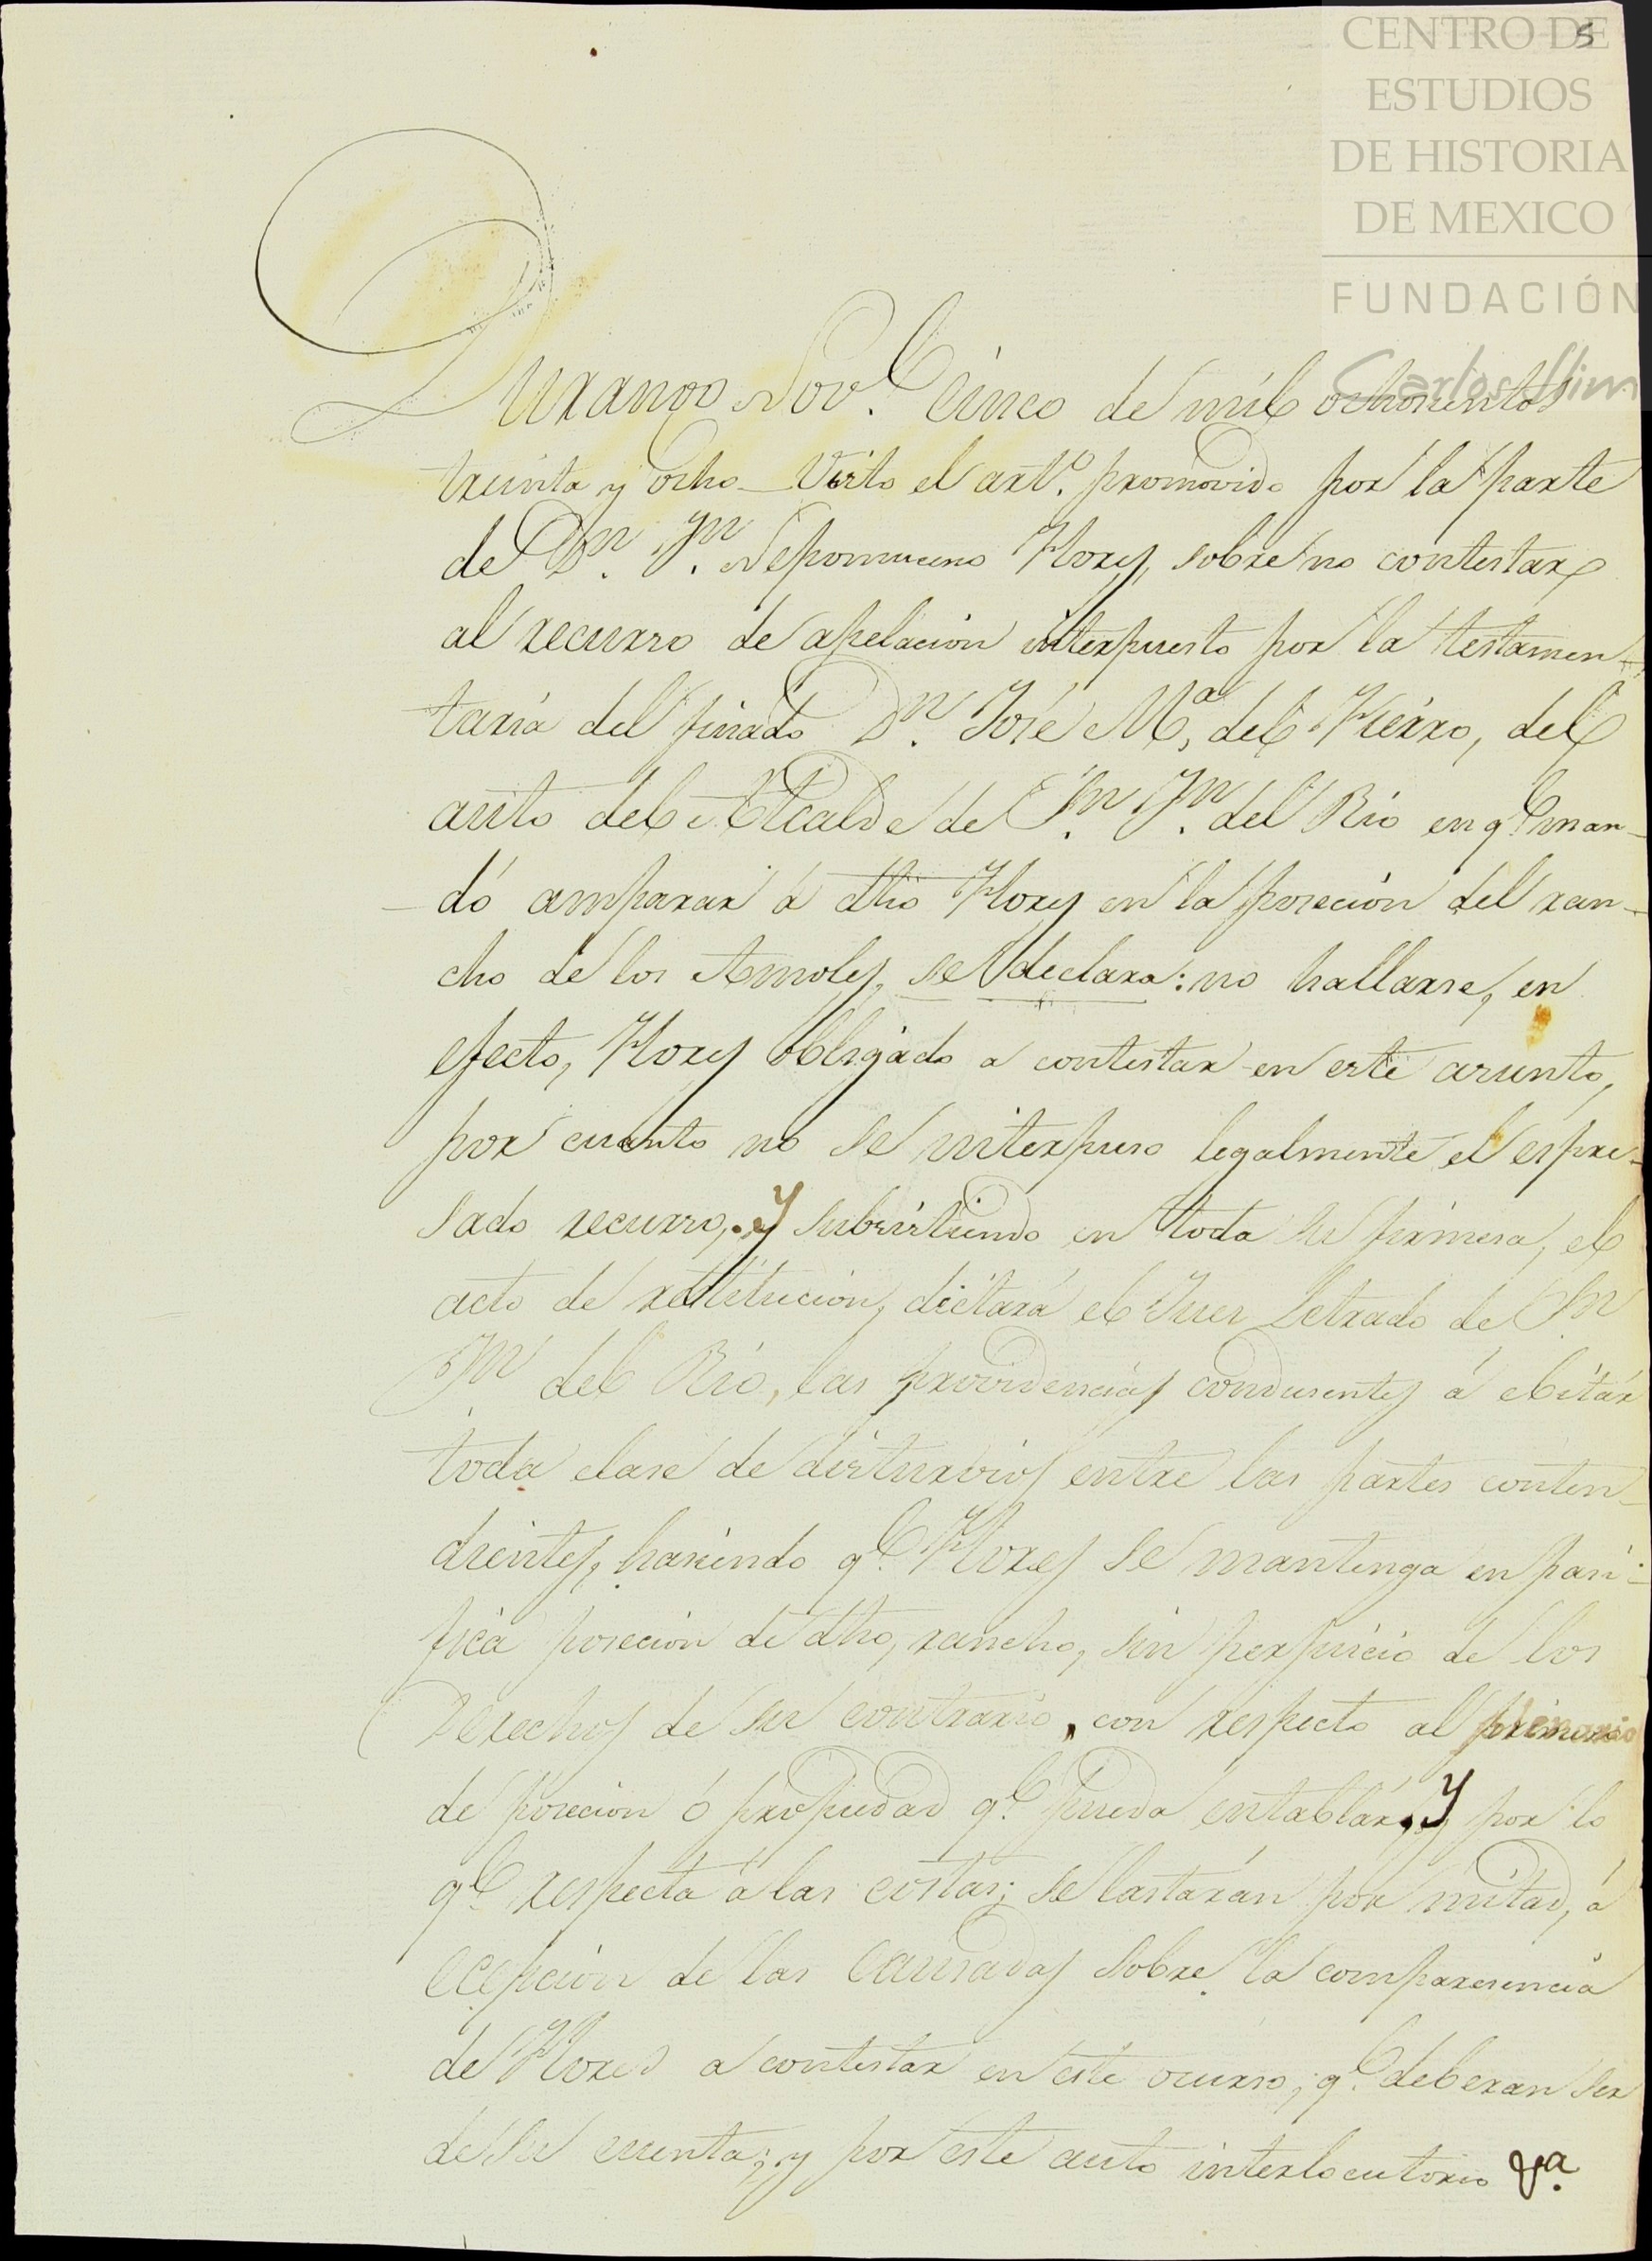 CENTRO DE
ESTUDIOS
DE HISTORIA
DE MEXICO
FUNDACIÓN
Carlos Slim
5
Durango Nov.e Cinco de mil ochosientos
treinta y ocho. Visto el art.o promovido por la parte
de D.n J.n Nepomuceno Flores, sobre no contestar
al recurso de apelacion interpuesto por la testamen-
taria del finado D.n José M.a del Hierro, del
auto del Alcalde de S.n J.n del Rio en q.e man-
dó amparar á dho Flores en la posecion del ran-
cho de los Amoles, se declara: no hallarse, en
efecto, Flores obligado a contestar en este asunto,
por cuanto no se interpuso legalmente el espre-
sado recurso, y subsistiendo en toda su firmesa, el
acto de restitucion, dictará el Juez Letrado de S.n
J.n del Rio, las providencias condusentes á ebitár
toda clase de disturvios entre las partes conten-
dientes, hasiendo q.e Flores se mantenga en pasi-
fica posecion de dho, rancho, sin perjuicio de los
Derechos de su contrario, con respecto al plenario
de posecion ó propiedad q.e pueda entablár, y por lo
q.e respecta á las costas; se lastarán por mitad, á
ecepcion de las causadas sobre la comparesencia
de Flores a contestar en este ocurso, q.e deberan ser
de su cuenta; y por este auto interlocutorio